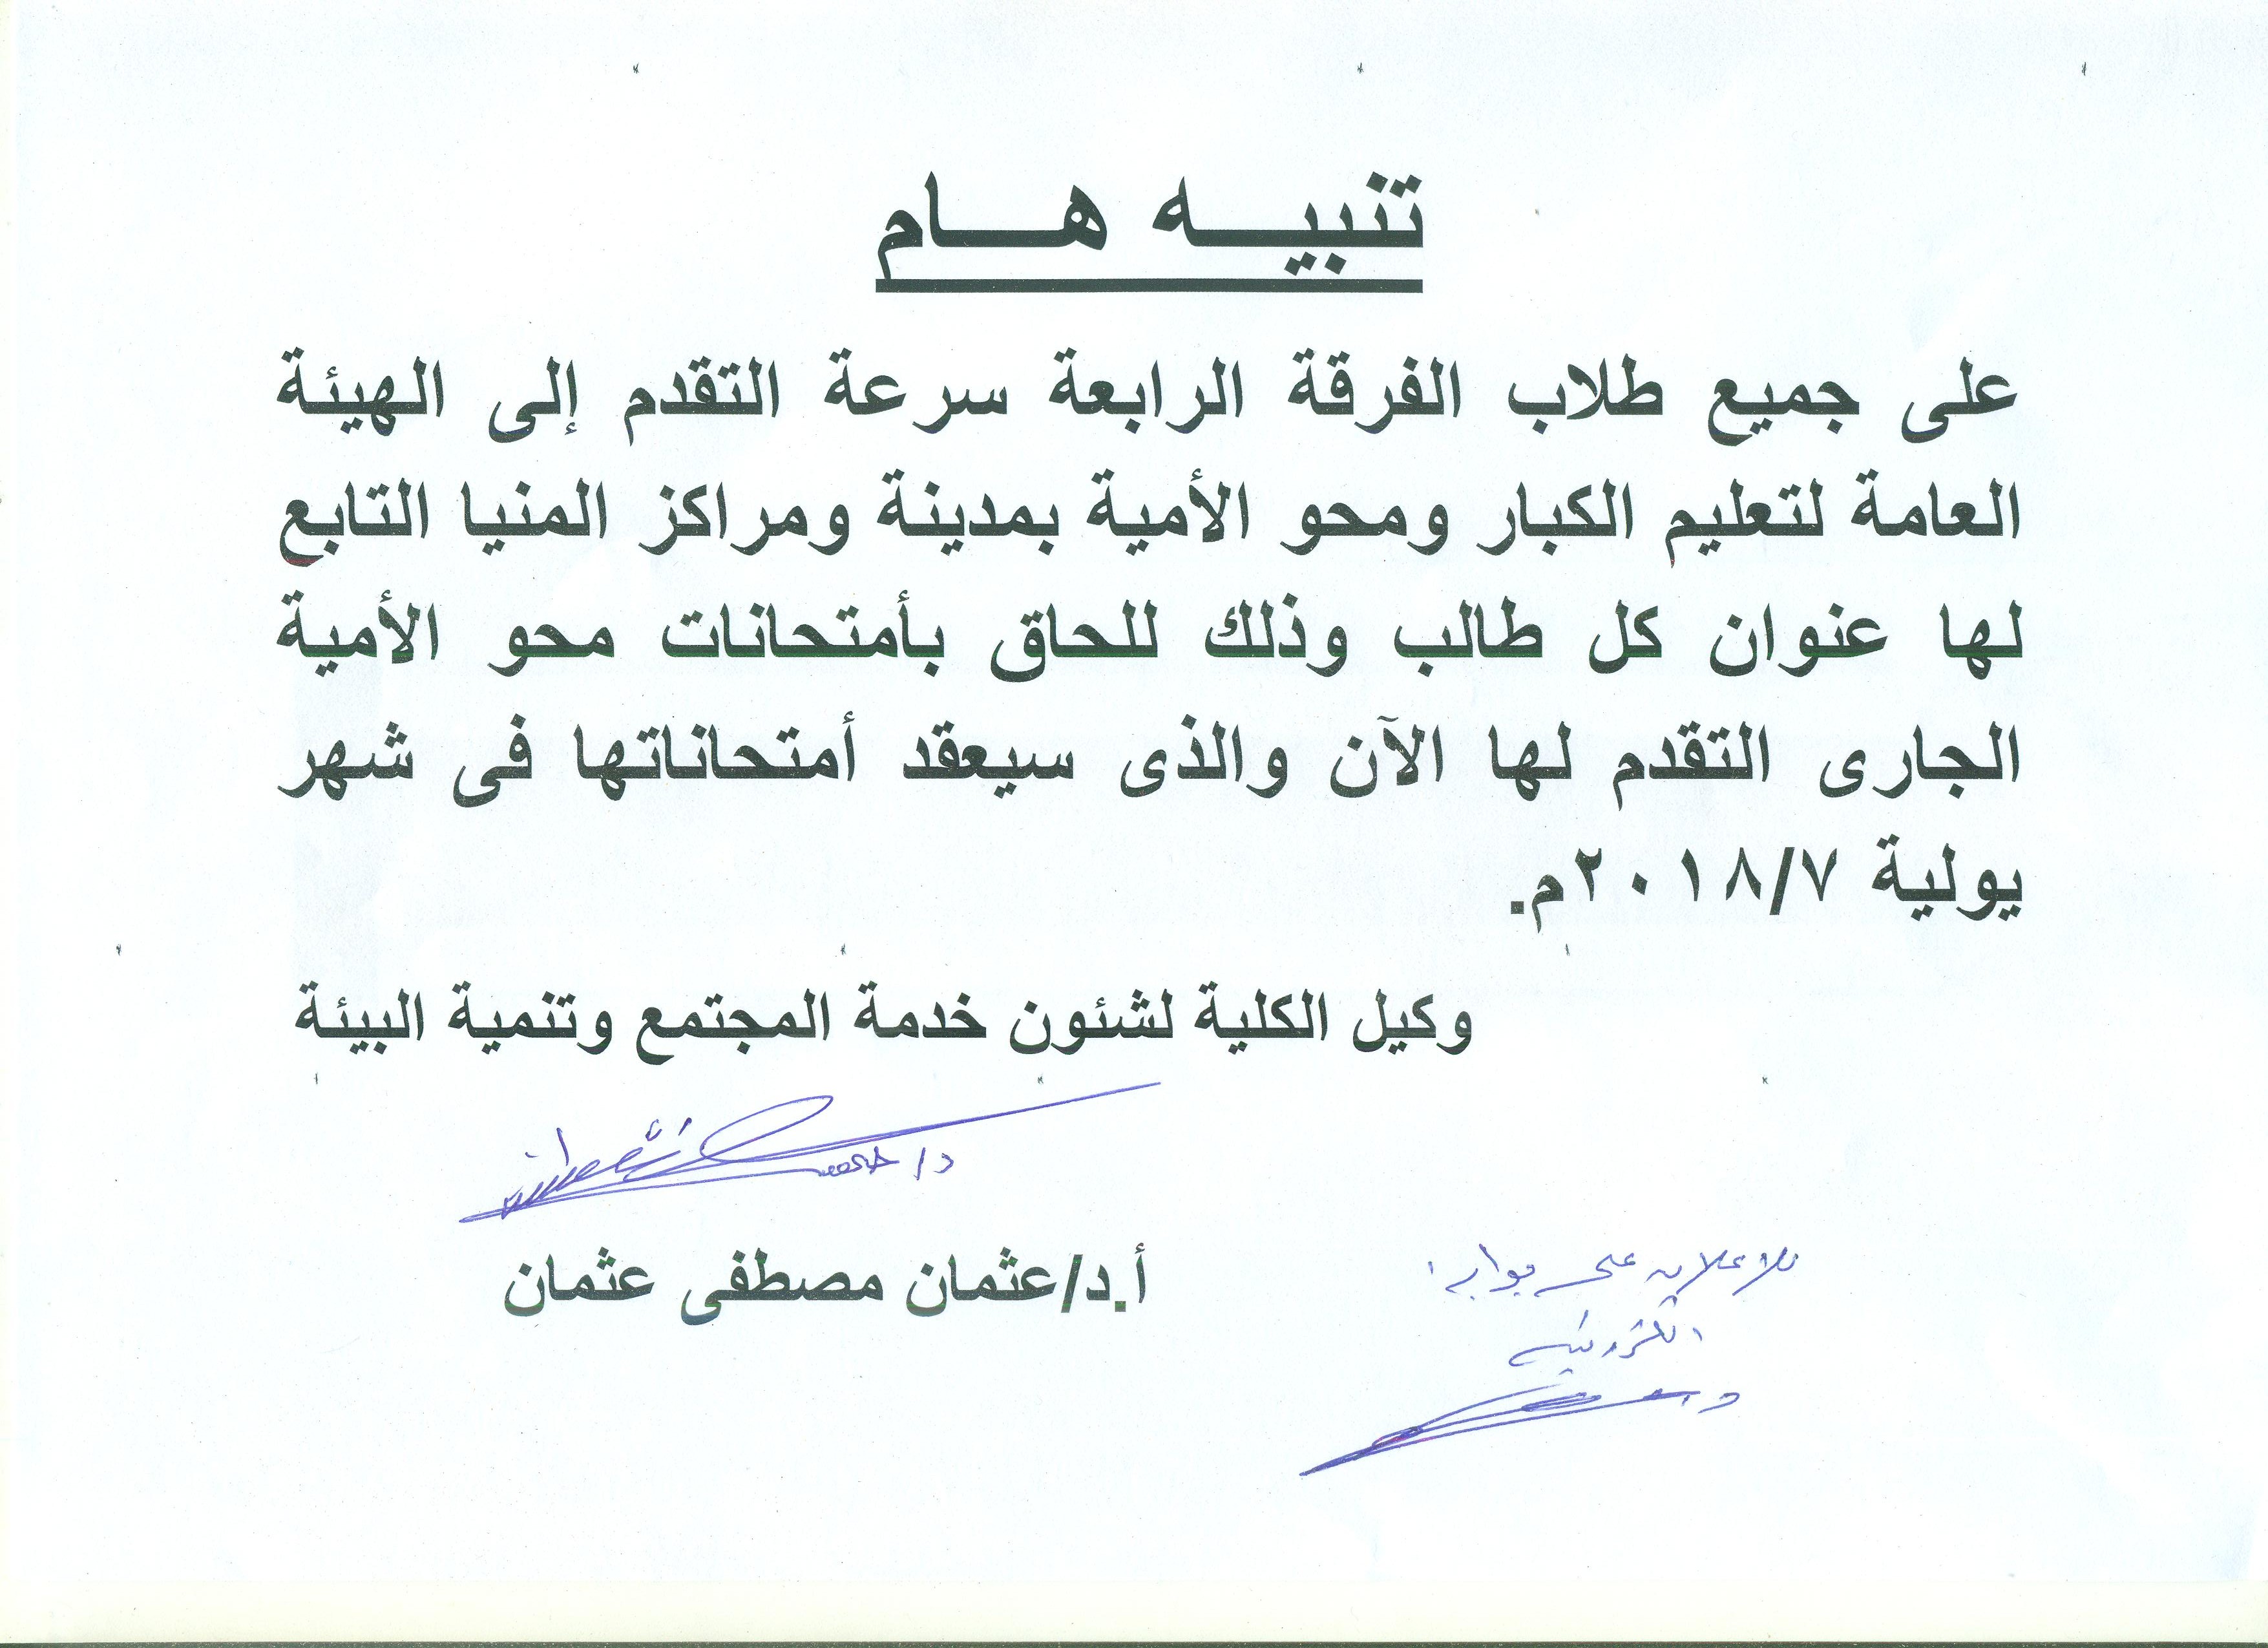 تنبيه هام
على جميع طلاب الفرقة الرابعة سرعة التقدم إلى الهيئة
العامة لتعليم الكبار ومحو الأمية بمدينة ومراكز المنيا التابع
لها عنوان كل طالب وذلك للحاق بأمتحانات محو الأمية
الجارى التقدم لها الآن والذى سيعقد أمتحاناتها فى شهر
يولية ٢٠١٨/٧م.
وكيل الكلية لشئون خدمة المجتمع وتنمية البيئة
د/
أ.د/عثمان مصطفى عثمان
للاعلان على بوابة
الكترونية